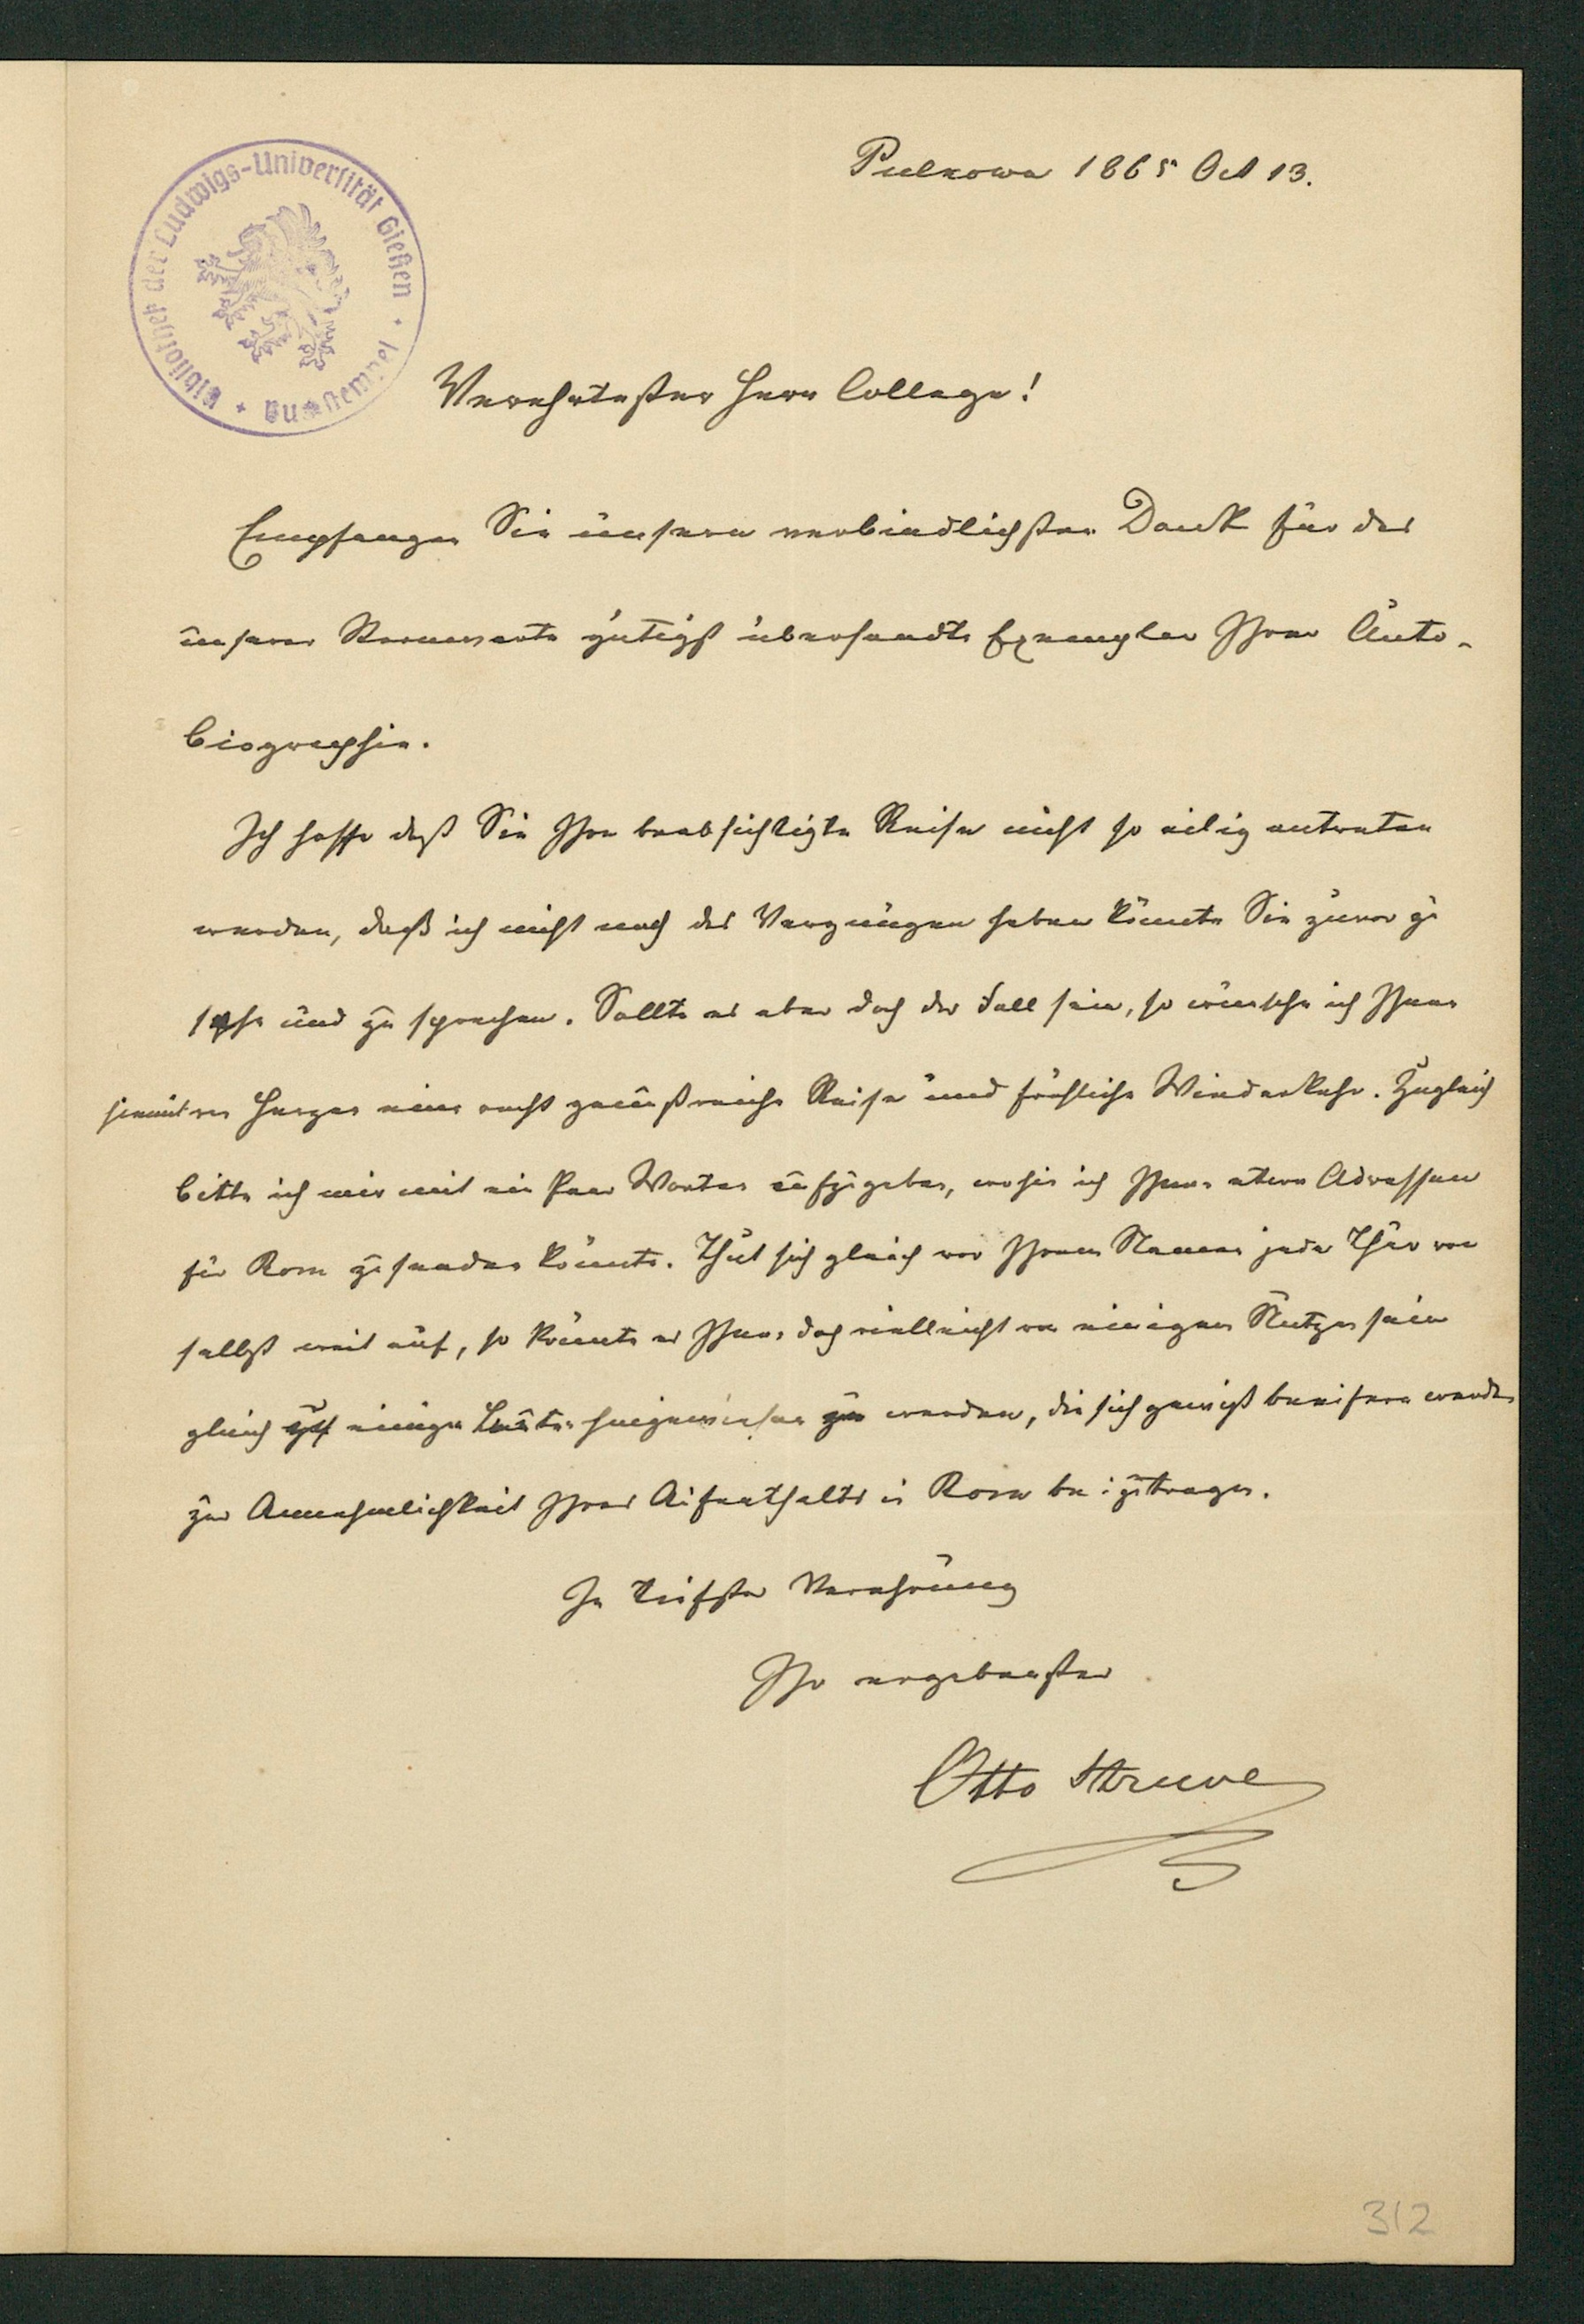 Pulkowa 1865 Oct 13.
Bibliothek der Ludwigs-Universität Gießen
Verehrtester Herr College!
Empfangen Sie unsern verbindlichsten Dank für das
unserer Sternwarte gütigst übersandte Exemplar Ihrer Auto-
biographie.
Ich hoffe daß Sie Ihre beabsichtigte Reise nicht so eilig antreten
werden, daß ich nicht noch das Vergnügen haben könnte Sie zuvor zu
sehn und zu sprechen. Sollte es aber doch der Fall sein, so wünsche ich Ihnen
hiemit von Herzen eine recht genußreiche Reise und fröhliche Wiederkehr. Zugleich
bitte ich mir mit ein Paar Worten aufzugeben, wohin ich Ihnen etwa Adressen
für Rom zusenden könnte. Thut sich gleich vor Ihrem Namen jede Thür von
selbst weit auf, so könnte es Ihnen doch vielleicht von einigem Nutzen sein
gleich auf einige Leute hingewiesen zu werden, die sich gewiß beeifern werden
zur Annehmlichkeit Ihres Aufenthalts in Rom beizutragen.
In tiefster Verehrung
Ihr ergebenster
Otto Struve
312